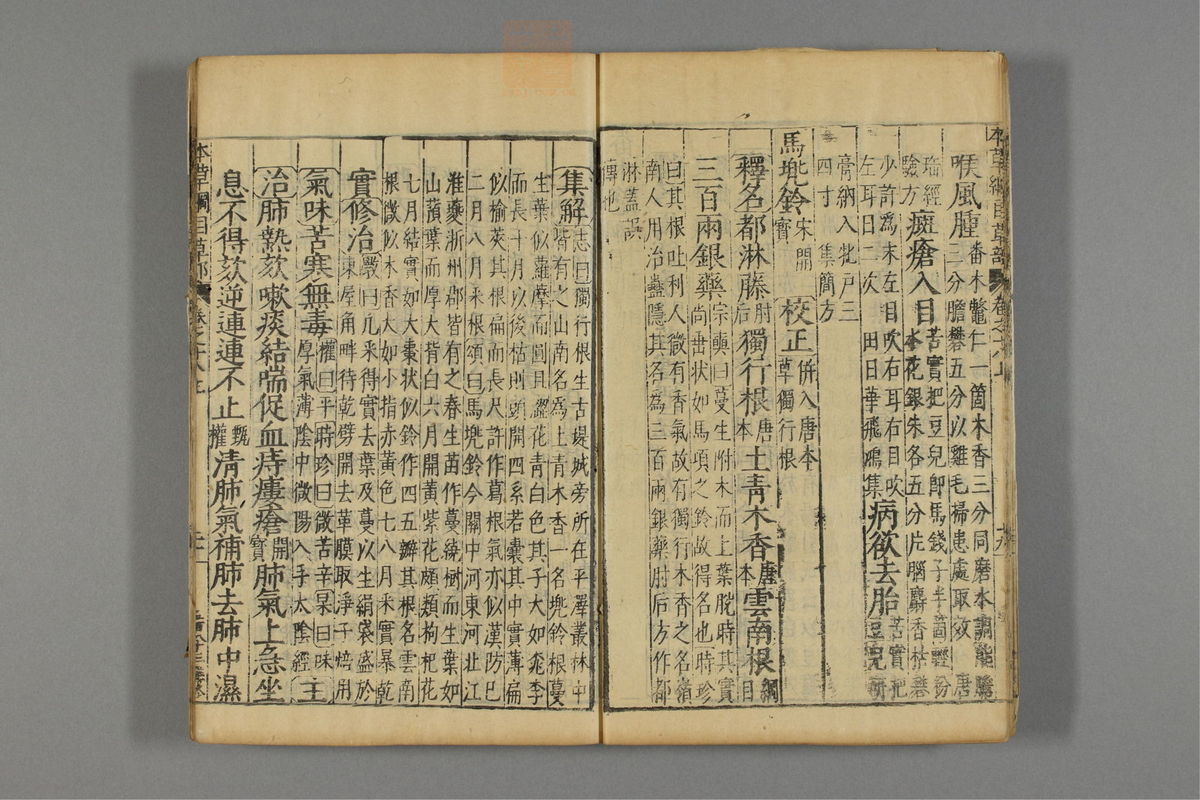 本草綱目草部 卷之十八上
喉風腫
番木鼈仁一箇木香三分同磨水調熊膽
三分膽礬五分以雞毛掃患處取效 唐
瑤經
驗方
癍瘡入目
苦實把豆兒卽馬錢子半箇輕粉
水花銀朱各五分片腦麝香枯礬
少許為末左目吹右耳右目吹
左耳日二次 田日華飛鴻集
病欲去胎
苦實把
豆兒研
膏納入牝戶三
四寸 集簡方
馬兜鈴
宋開
寶
校正
併入唐本
草獨行根
釋名都淋藤
肘
后
獨行根
唐
本
土青木香
唐
本
雲南根
綱
目
三百兩銀藥
宗奭曰蔓生附木而上葉脫時其實
尚垂狀如馬項之鈴故得名也時珍
曰其根吐利人微有香氣故有獨行木香之名嶺
南人用治蠱隱其名為三百兩銀藥肘后方作都
淋蓋誤
傳也
集解
志曰獨行根生古堤城旁所在平澤叢林中
皆有之山南名為土青木香一名兜鈴根蔓
生葉似蘿摩而圓且澀花青白色其子大如桃李
而長十月以後枯則頭開四系若囊其中實薄扁
似榆莢其根扁而長尺許作葛根氣亦似漢防已
二月八月采根頌曰馬兜鈴今關中河東河北江
淮夔浙州郡皆有之春生苗作蔓繞樹而生葉如
山蕷葉而厚大背白六月開黃紫花頗類狗杞花
七月結實如大棗狀似鈴作四五瓣其根名雲南
根微似木香大如小指赤黃色七八月采實暴乾
實修治
斅曰凡采得實去葉及蔓以生絹袋盛於
東屋角畔待乾劈開去革膜取淨子焙用
氣味苦寒無毒
權曰平時珍曰微苦辛杲曰味
厚氣薄陰中微陽入手太陰經
主
治肺熱欬嗽痰結喘促血痔瘻瘡
開
寶
肺氣上急坐
息不得欬逆連連不止
甄
權
清肺氣補肺去肺中濕
本草綱目草部 卷之十八上